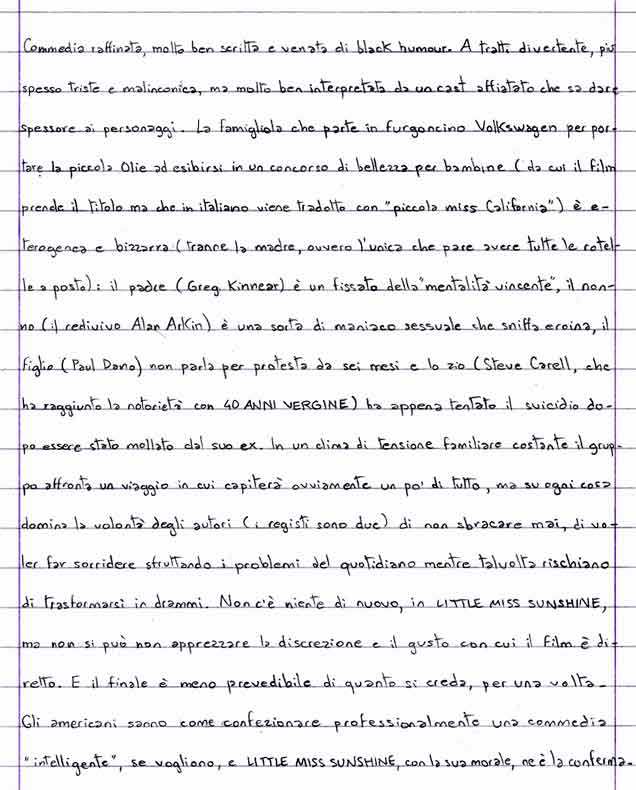 Commedia raffinata, molto ben scritta e venata di black humour. A tratti divertente, più
spesso triste e malinconica, ma molto ben interpretata da un cast affiatato che sa dare
spessore ai personaggi. La famigliola che parte in furgoncino Volkswagen per por-
tare la piccola Olie ad esibirsi in un concorso di bellezza per bambine (da cui il film
prende il titolo ma che in italiano viene tradotto con "piccola miss California") è e-
terogenea e bizzarra (tranne la madre, ovvero l'unica che pare avere tutte le rotel-
le a posto): il padre (Greg Kinnear) è un fissato della "mentalità vincente", il non-
no (il redivivo Alan Arkin) è una sorta di maniaco sessuale che sniffa eroina, il
figlio (Paul Dano) non parla per protesta da sei mesi e lo zio (Steve Carell, che
ha raggiunto la notorietà con 40 ANNI VERGINE) ha appena tentato il suicidio do-
po essere stato mollato dal suo ex. In un clima di tensione familiare costante il grup-
po affronta un viaggio in cui capiterà ovviamente un po' di tutto, ma su ogni cosa
domina la volontà degli autori (i registi sono due) di non sbracare mai, di vo-
ler far sorridere sfruttando i problemi del quotidiano mentre talvolta rischiano
di trasformarsi in drammi. Non c'è niente di nuovo, in LITTLE MISS SUNSHINE,
ma non si può non apprezzare la discrezione e il gusto con cui il film è di-
retto. E il finale è meno prevedibile di quanto si creda, per una volta.
Gli americani sanno come confezionare professionalmente una commedia
"intelligente", se vogliono, e LITTLE MISS SUNSHINE, con la sua morale, ne è la conferma.